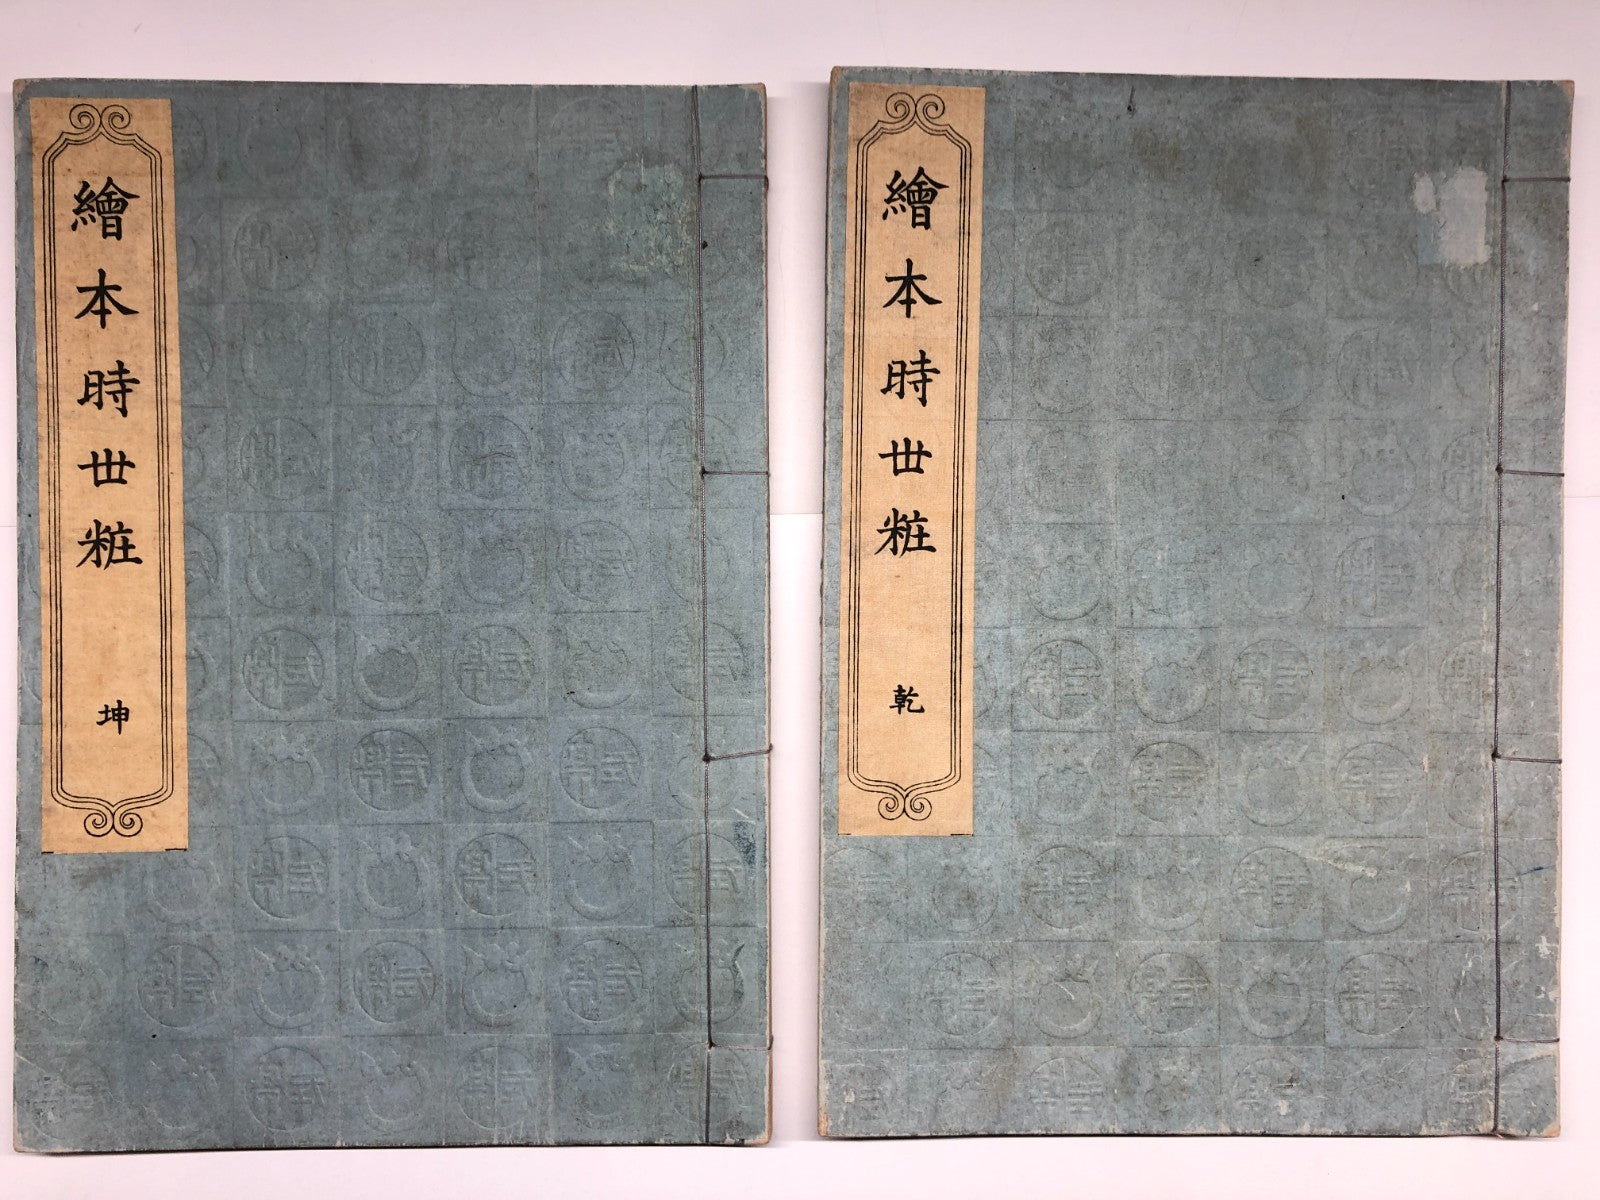 繪本時世粧
乾
繪本時世粧
坤